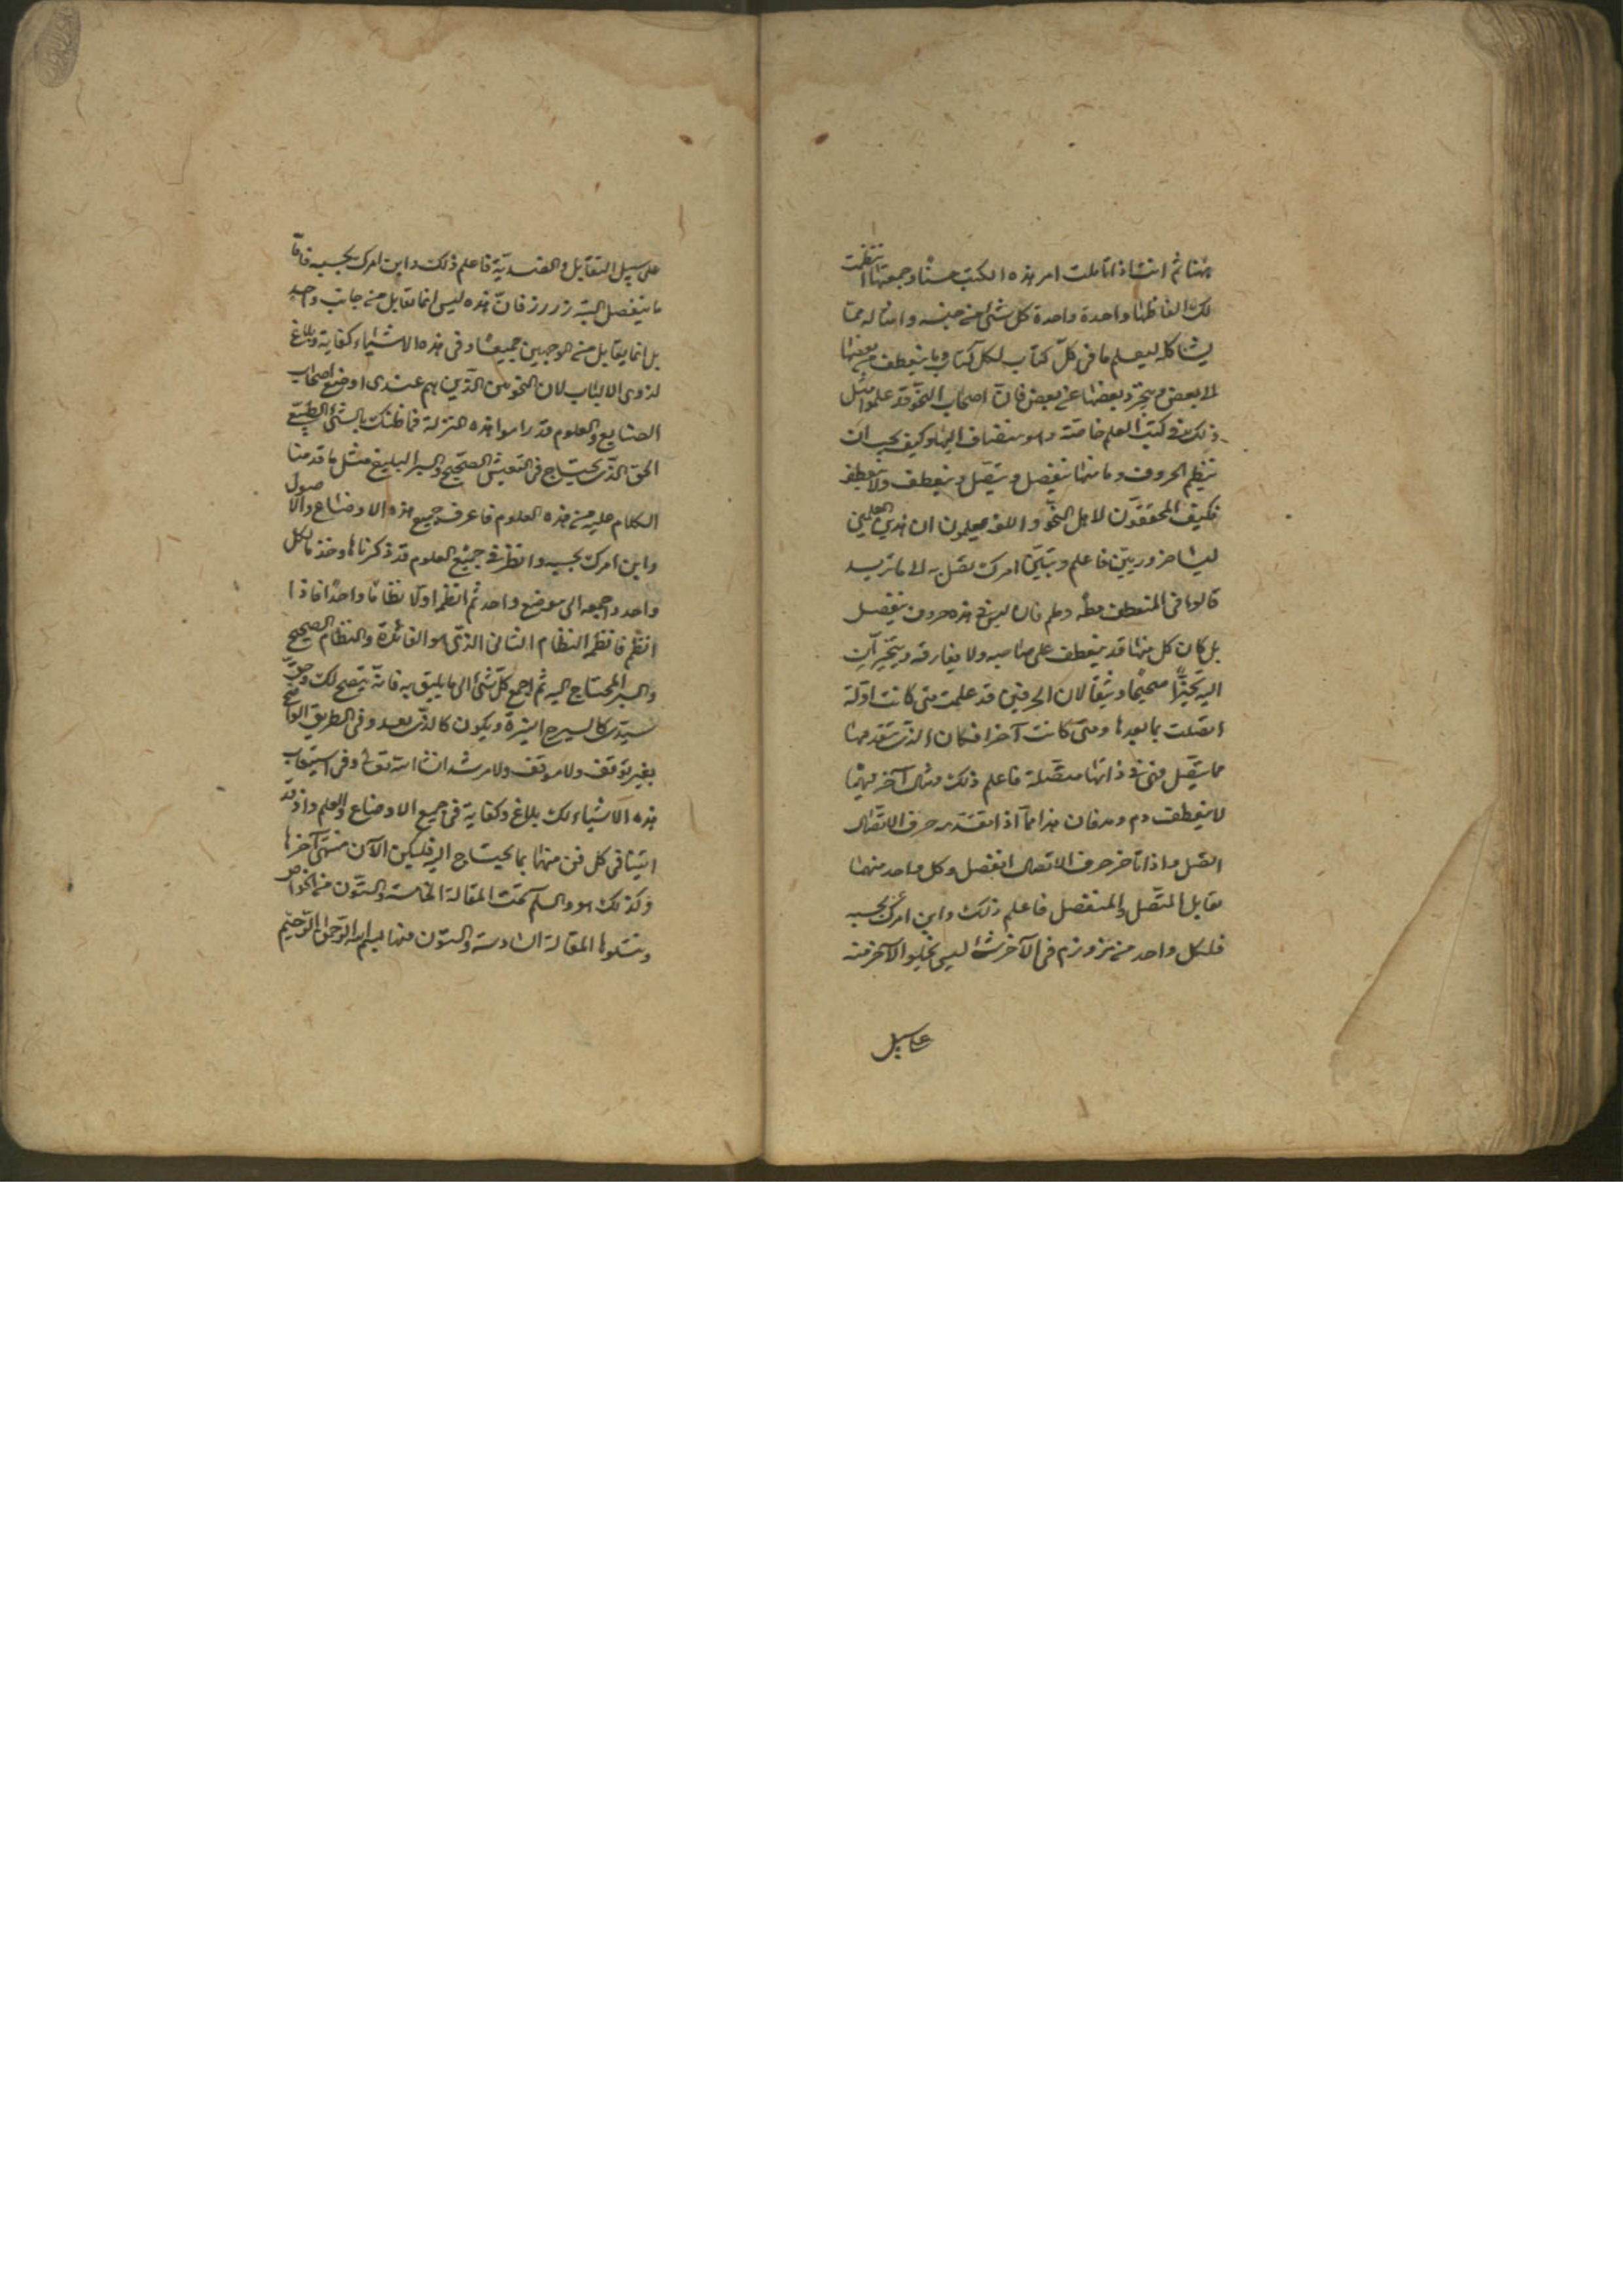 هٰهنا ثم انت اذا تاملت امر هذه الكتب حسنا وجمعتها انتظمت
لك الفاظها واحدة واحدة كل شئ من جنسه وامثاله مما
يشاكله ليعلم ما فى كل كتاب لكل كتاب وما ينعطف من بعضها
الا بعض وينجرد بعضها عن بعض فان اصحاب النحو قد علموا مثل
ذلك فى كتب العلم خاصة وهو منضاف اليها وكيف يجب ان
ينظم الحروف وما منها ينفصل ويتصل وينعطف ولا ينعطف
فكيف المحققون لاهل النحو واللغة يعلمون ان هذين العلمين
ليسا ضروريين فاعلم وتبين امرك تصل به الى ما تريد
قالوا فى المنعطف وعلم فان ليس فى هذه حروف ينفصل
بل كان كل منها قد ينعطف على صاحبه ولا يفارقه
اليه صحيحا وثيقا لان الحرفين قد علمت متى كانت اولة
اتصلت بما بعدها ومتى كانت آخرا فكان الذى تتقدمها
مما يتصل فهى فى ذاتها متصلة فاعلم ذلك ومثال آخر فيما
لا ينعطف دم ومد فان هذا مما اذا تقدمه حرف الاتصال
اتصل واذا تاخر حرف الاتصال انفصل وكل واحد منهما
يقابل المتصل والمنفصل فاعلم ذلك وابن امرك بحسبه
فلكل واحد من مز وزم فى الآخر شئ ليس يخلو الآخر منه
على سبيل
على سبيل التقابل والضدية فاعلم ذلك وابن امرك بحسبه فاما
ما ينفصل البتة زر رز فان هذه ليس انما تقابل من جانب واحد
بل انما يقابل من الوجهين جميعا وفى هذه الاشياء كفاية وبلاغ
لذوى الالباب لان النحويين الذين هم عندى اوضع اصحاب
الصنايع والعلوم قد راموا هذه المنزلة فما ظنك بالشئ الطبيعى
الحق الذى يحتاج فى التفتيش الصحيح والسبر البليغ مثل ما قدمنا
الكلام عليه من هذه العلوم فاعرف جميع هذه الاوضاع والاصول
وابن امرك بحسبه وانظر فى جميع العلوم قد ذكرناها وخذ ما لكل
واحد واجمعه الى موضع واحد ثم انظم اولا نظاما واحدا فاذا
انتظم فانظم النظام الثانى الذى هو الفائدة والنظام الصحيح
والسبر المحتاج اليه ثم اجمع كل شئ الى ما يليق به فانه يتضح لك وحق
سيدى كالسرج النيرة ويكون كالذى يعدو فى الطريق الواضح
بغير توقف ولا موقف ولا مرشد ان شاء الله تعالى وفى استيعاب
هذه الاشياء لك بلاغ وكفاية فى جميع الاوضاع والعلم واذ قد
اتينا فى كل فن منها بما يحتاج اليه فليكن الآن منتهى آخرها
وكذلك هو والسلم تمت المقالة الخامسة والستون من الخواص
ويتلوها المقالة السادسة والستون منها بسم الله الرحمن الرحيم